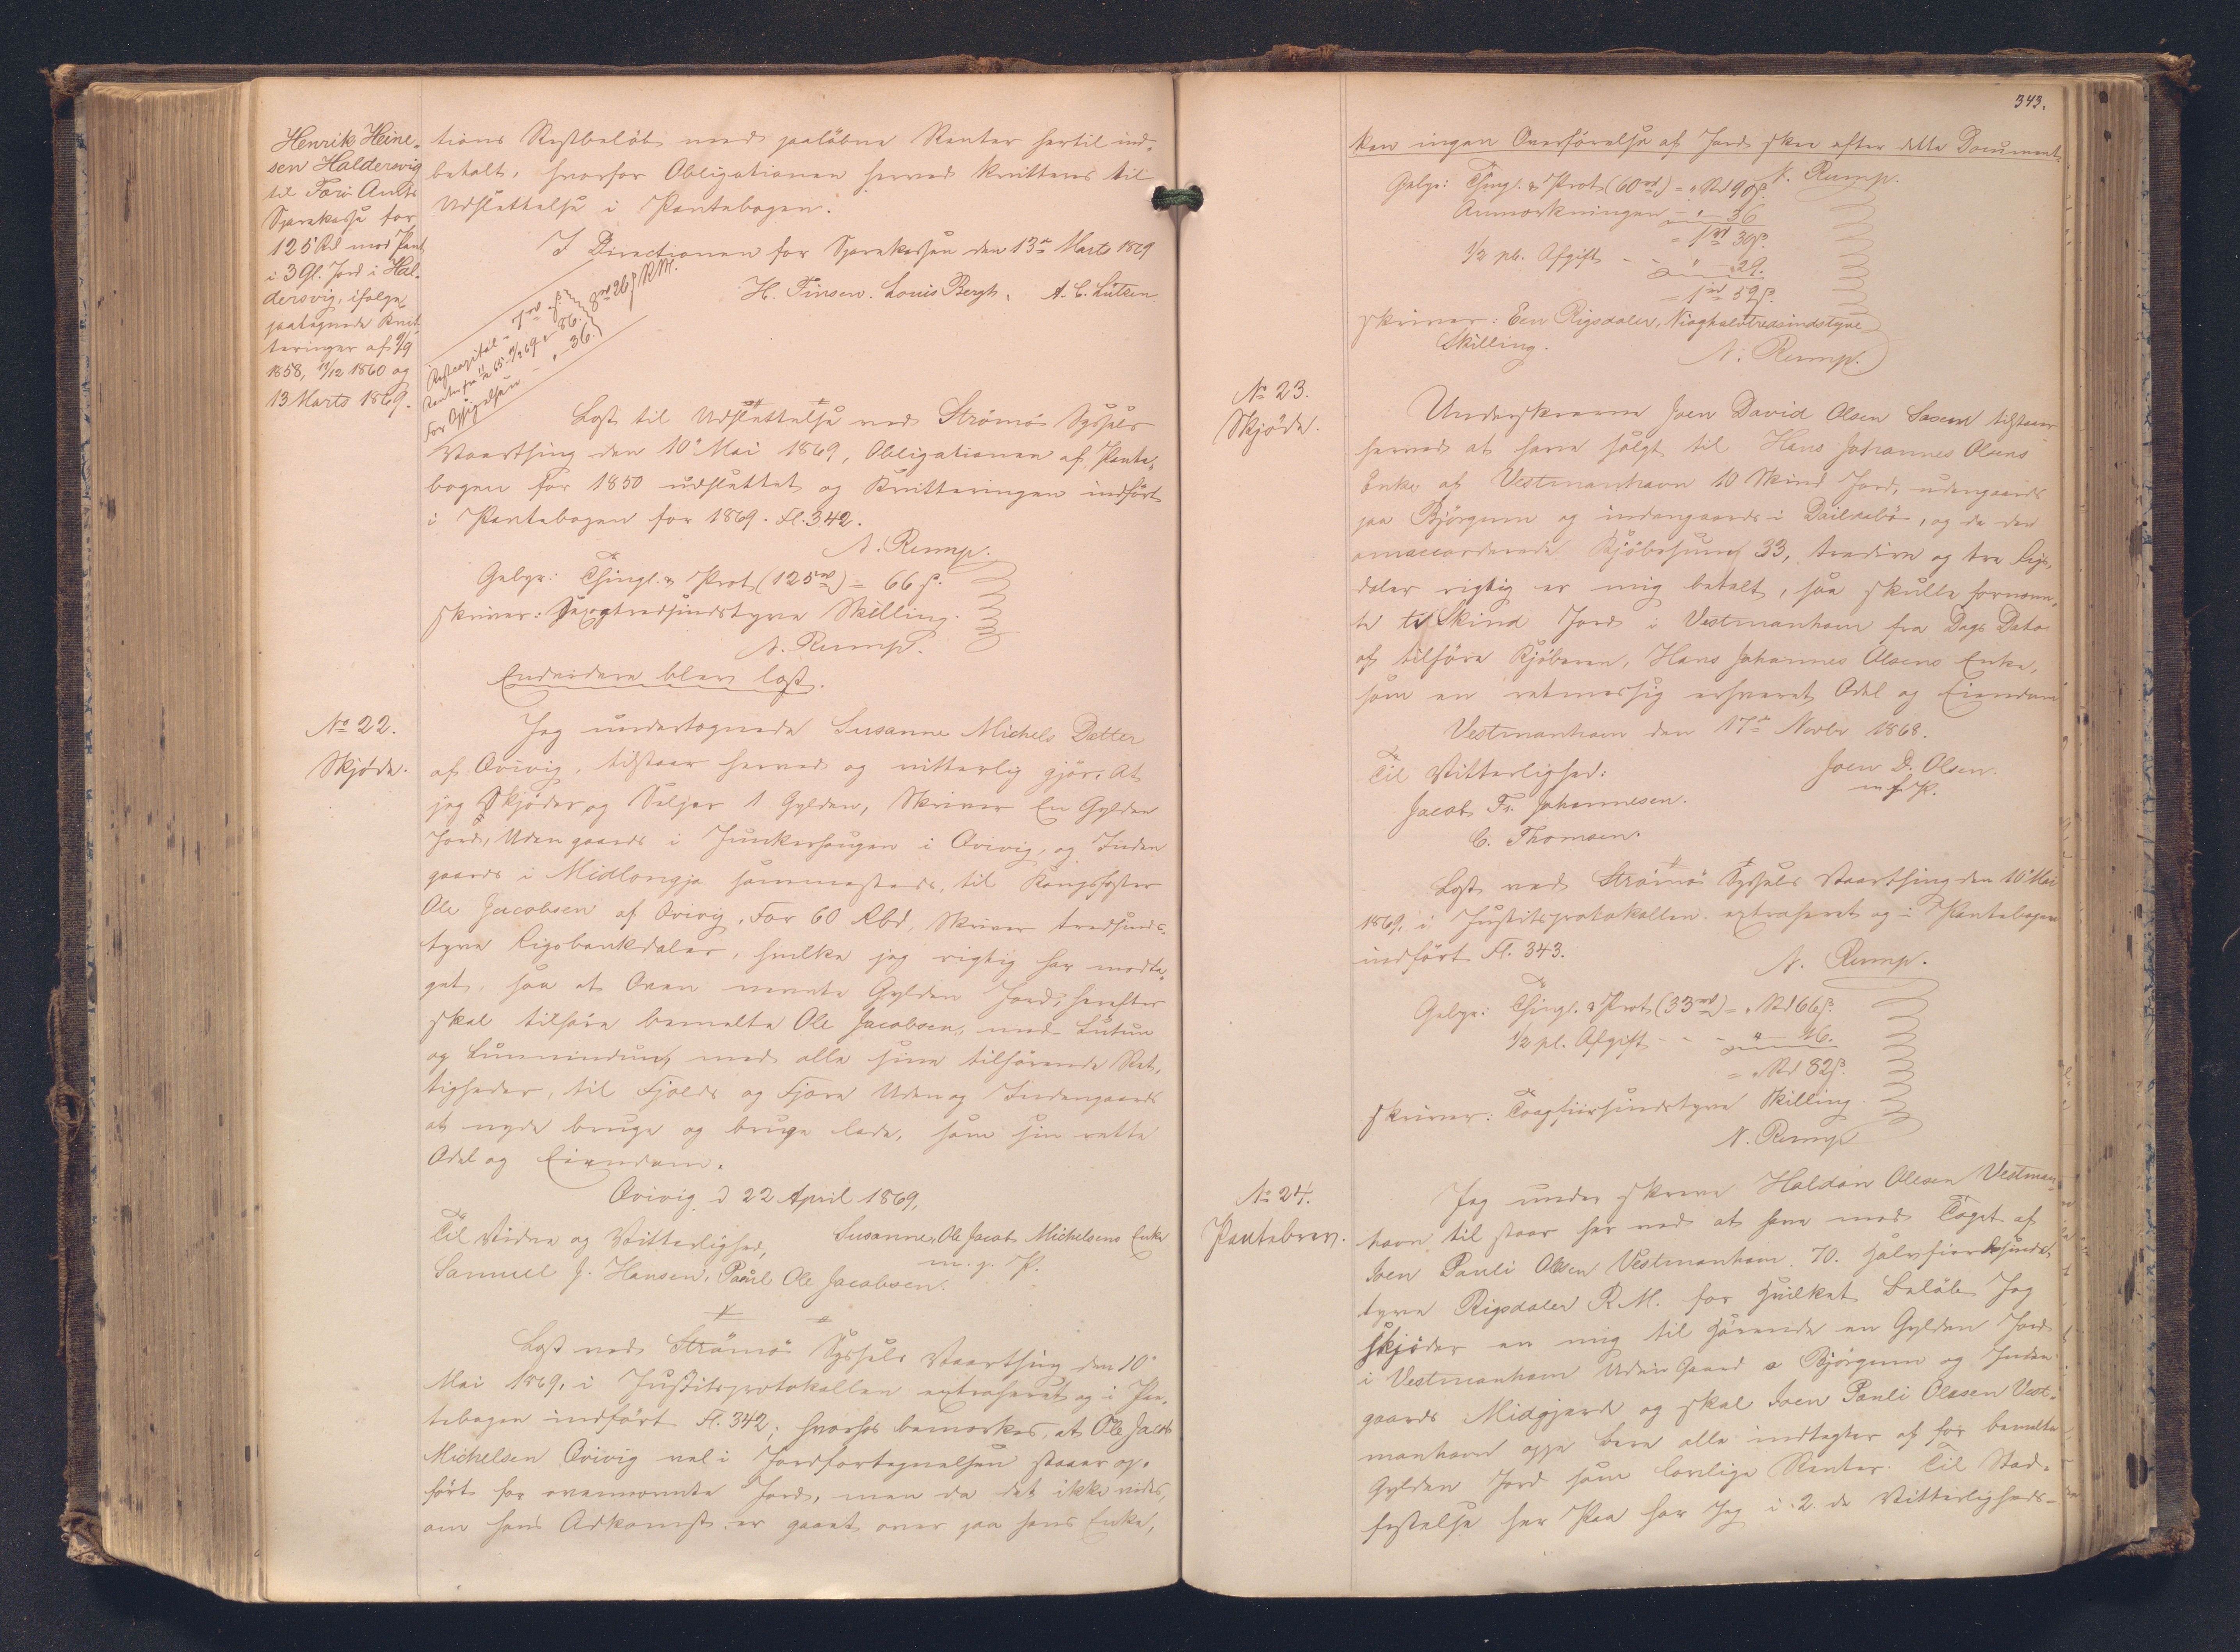 Henrik Heine-
sen Haldersvig
til Færø Amts
Sparekasse for
125 Rd mod Pant
i 3 Gl. Jord i Hal-
dersvig, ifølge
paategnede Kvit-
teringer af 9/9
1858, 11/12 1860 og
13 Marts 1869.
tions Restbeløb med paaløbne Renter hertil ind-
betalt, hvorfor Obligationen herved kvitteres til
Udslettelse i Pantebogen.
I Directionen for Sparekassen den 13de Marts 1869
H. Finsen. Louis Bergh. A. C. Lützen.
Restcapital - 7rd " ß
Renter fra 11/12 65 - 11/3 69 " - 86.
For Opsigelsen " - 36.
8rd 26 ß R.M.
Læst til Udslettelse ved Strømø Syssels
Vaarthing den 10de Mai 1869, Obligationen af Pante-
bogen for 1850 udslettet og Kvitteringen indført
i Pantebogen for 1869. Fl. 342.
N. Rump.
Gebyr: Thingl. & Prot (125rd) = 66 ß.
skriver: Sexogtredsindstyve Skilling.
N. Rump.
Endvidere blev læst.
No 22.
Skjøde.
Jeg undertegnede Susanne Michels Datter
af Qvivig, tilstaar herved og vitterlig gjør, At
jeg Skjøder og Sælger 1 Gylden, Skriver En Gylden
Jord, Uden gaards i Junkershaugen i Qvivig, og Inden
gaards i Midlongja sammesteds, til Kongsfæster
Ole Jacobsen af Qvivig, For 60 Rbd, Skriver tredsinds-
tyve Rigsbankdaler, hvilke jeg rigtig har modta-
get, saa at Oven nævnte Gylden Jord, herefter
skal tilhøre bemelte Ole Jacobsen, med Lutum
og Lunnindum, med alle sine tilhørende Ret-
tigheder, til Fjelds og Fjære Uden og Indengaards
at nyde bruge og bruge lade, som sin rette
Odel og Eiendom.
Qvivig d 22 April 1869,
Til Vidne og Vitterlighed, Susanne, Ole Jacob Michelsens Enke
Samuel J. Hansen, Poul Ole Jacobsen. m. f. P.
Læst ved Strømø Syssels Vaarthing den 10de
Mai 1869, i Justitsprotokollen extraheret og i Pan-
tebogen indført Fl. 342; hvorhos bemærkes, at Ole Jacob
Michelsen Qvivig vel i Jordfortegnelsen staaer op-
ført for ovennævnte Jord, men da det ikke vides,
om hans Adkomst er gaaet over paa hans Enke,
343.
kan ingen Overførelse af Jord skee efter dette Document.
N. Rump.
Gebyr: Thingl. & Prot (60rd) = " Rd 90 ß.
Anmærkningen - " - 36
= 1rd 30 ß.
1/2 pC. Afgift - - " - 29.
= 1rd 59 ß.
skriver: Een Rigsdaler, Nioghalvtredsindstyve
Skilling.
N. Rump.
No 23.
Skjøde.
Underskrevne Joen David Olsen Saxun tilstaar
herved at have solgt til Hans Johannes Olsens
Enke af Vestmanhavn 10 Skind Jord, udengaards
paa Bjørgum og indengaards i Dailsabø, og da den
omaccorderede Kjøbesum 33, tredive og tre Rigs-
daler rigtig er mig betalt, saa skulle fornævn-
te ti Skind Jord i Vestmanhavn fra Dags Dato
af tilhøre Kjøberen, Hans Johannes Olsens Enke,
som en retmæssig erhvervet Odel og Eiendom
Vestmanhavn den 17de Novbr 1868.
Til Vitterlighed: Joen D. Olsen
Jacob Fr. Johannesen. m. f. P.
C. Thomsen.
Læst ved Strømø Syssels Vaarthing den 10de Mai
1869, i Justitsprotokollen extraheret og i Pantebogen
indført Fl. 343.
N. Rump.
Gebyr: Thingl. & Prot (33rd) = " Rd 66 ß.
1/2 pC. Afgift - - - " - 16.
= " Rd 82 ß.
skriver: Toogfiirsindstyve Skilling.
N. Rump
No 24.
Pantebrev.
Jeg under skrevne Haldan Olesen Vestman-
havn til staar her ved at have mod Taget af
Joen Pauli Olesen Vestmanhavn 70. halvfierdesinds
tyve Rigsdaler R.M. for hvilket Beløb Jeg
skjøder en mig til hørende en Gylden Jord
i Vestmanhavn Uden Gaard a Bjørgum og Inden
gaards Midgjard og skal Joen Pauli Olesen Vest-
manhavn oppe bære alle indtægter af for bemelte
Gylden Jord som lovlige Renter. Til Stad-
festelse her Paa har Jeg i 2. de Vitterligheds-